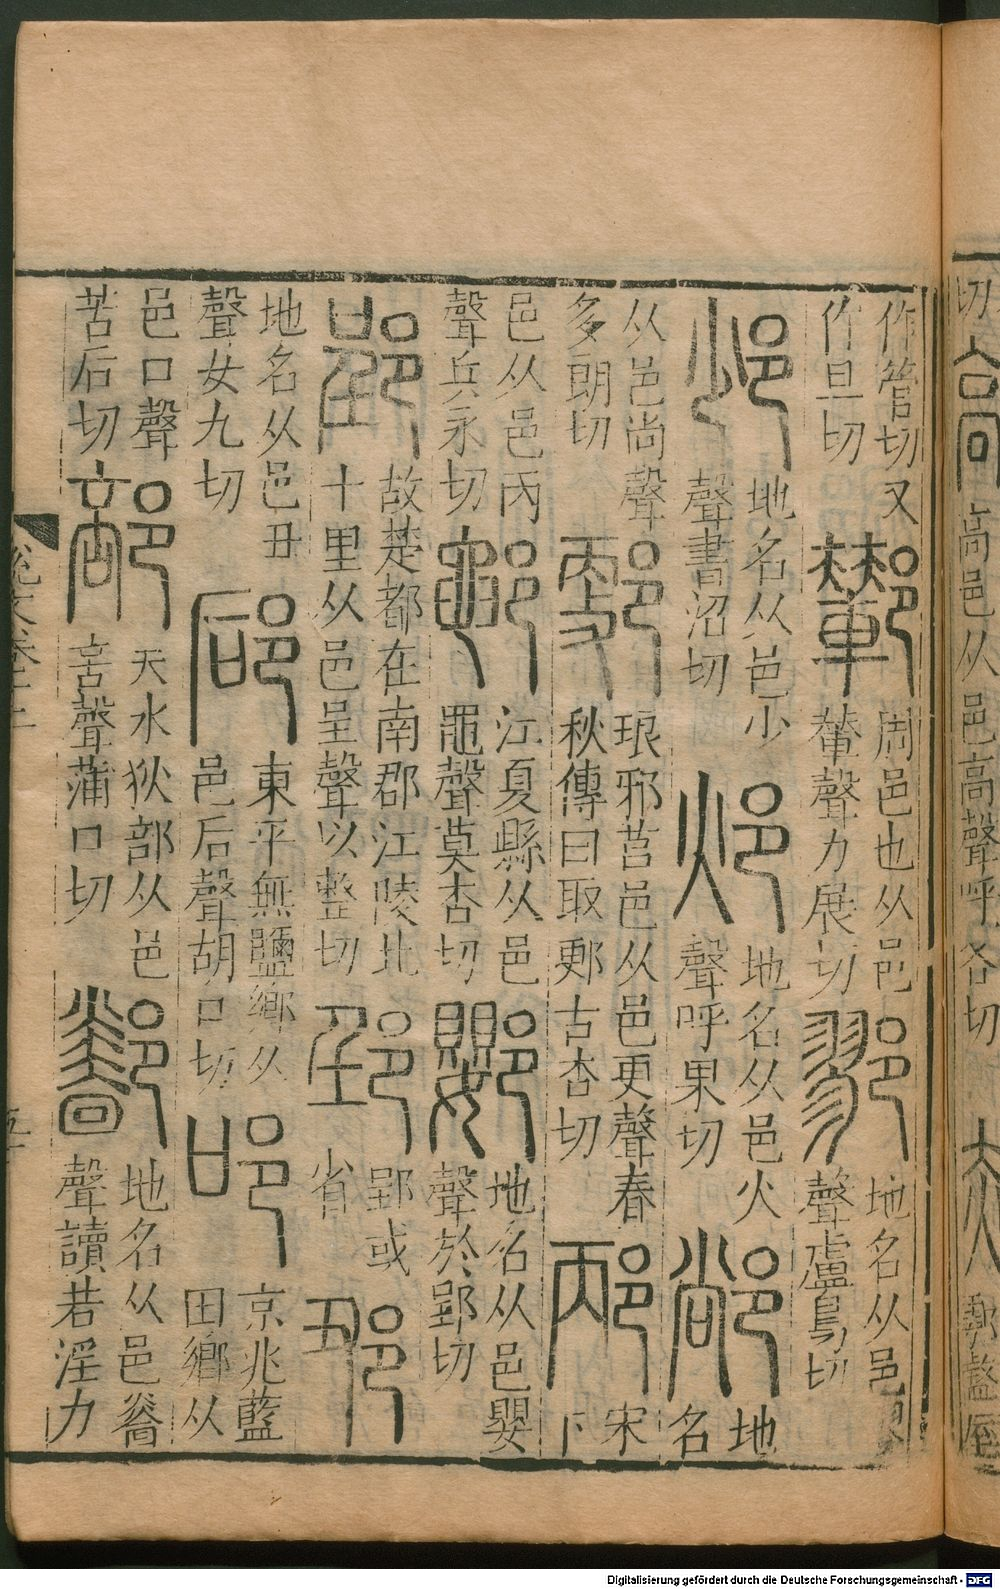 作管切又
作旦切
鄻
周邑也从邑
輦聲力展切
鄝
地名从邑
聲盧鳥切
地名从邑少
聲書沼切
邩
地名从邑火
聲呼果切
地
名
从邑尚聲
多朗切
郠
琅邪莒邑从邑更聲春
秋傳曰取郠古杏切
邴
宋
下
邑从邑丙
聲兵永切
鄳
江夏縣从邑
黽聲莫杏切
地名从邑嬰
聲於郢切
郢
故楚都在南郡江陵北
十里从邑呈聲以整切
郢或
省
地名从邑丑
聲女九切
郈
東平無鹽鄉从
邑后聲胡口切
京兆藍
田鄉从
邑口聲
苦后切
部
天水狄部从邑
咅聲蒲口切
地名从邑
聲讀若淫力
Digitalisierung gefördert durch die Deutsche Forschungsgemeinschaft - DFG